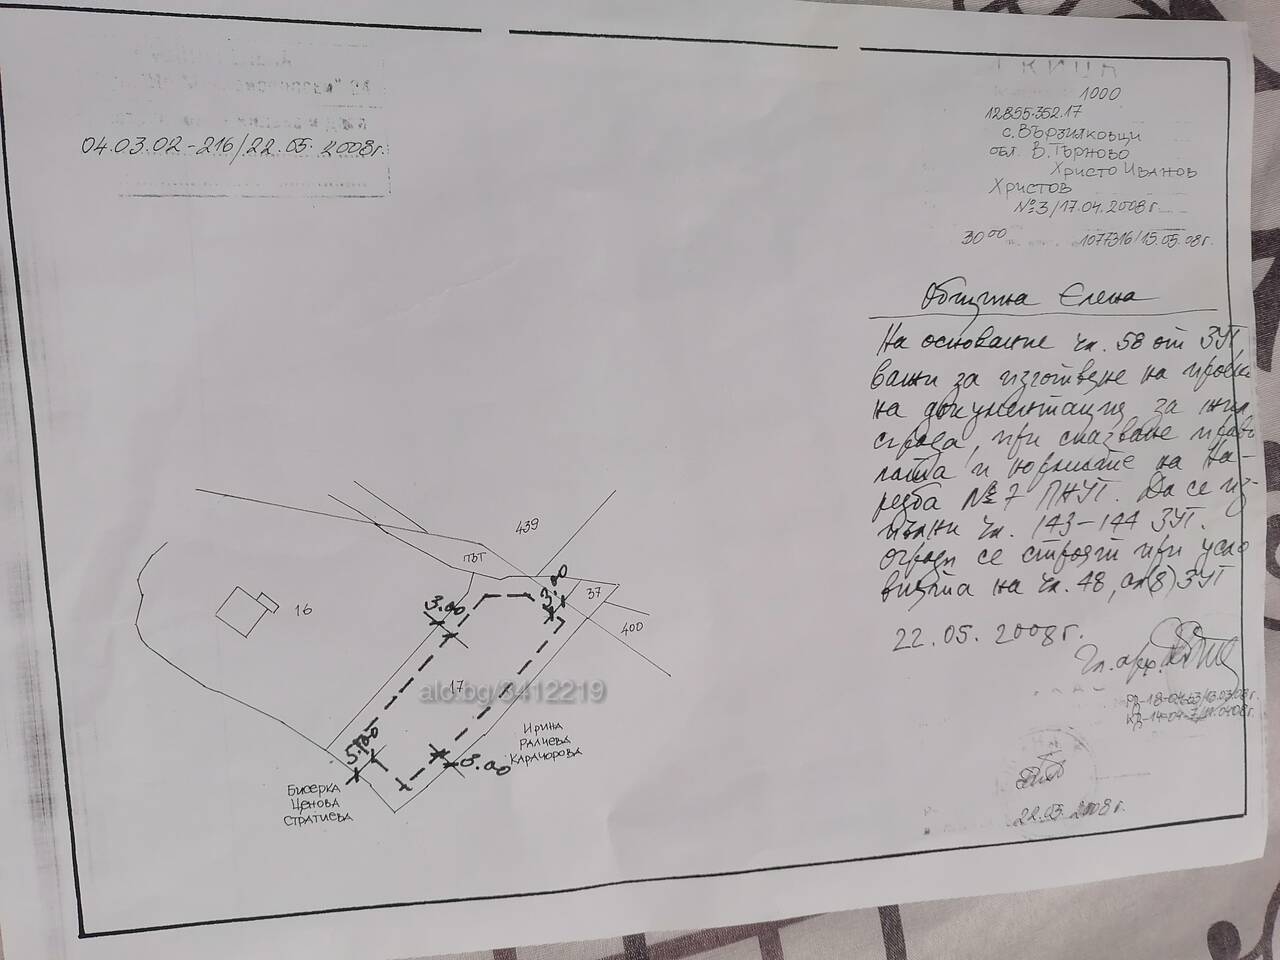 04.03.02-216/22.05.2008г.
СКИЦА
1000
12855.352.17
с. Вързилковци
обл. В. Търново
Христо Иванов
Христов
№3/17.04.2008г.
30⁰⁰ 1077316/15.05.08г.
Община Елена
На основание чл. 58 от ЗУТ
важи за изготвяне на проек
на документация за жил.
сграда, при спазване прави
лата и нормите на На-
редба №7 ПНУТ. Да се из-
пълни чл. 143-144 ЗУТ.
огради се строят при усло
вията на чл. 48, ал(8) ЗУТ
22.05.2008г.
Гл. арх.
22.05.2008г.
439
ПЪТ
3.00
3.00
37
16
400
17
alo.bg/3412219
5.00
3.00
Ирина
Ралчева
Карачорова
Бисерка
Ценова
Стратиева